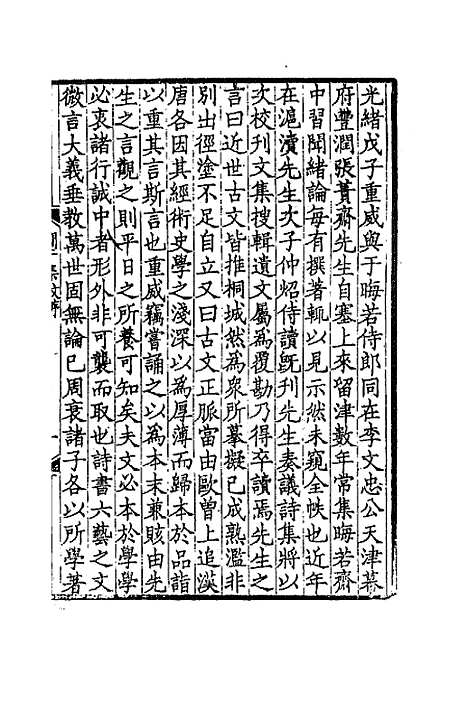 光緒戊子重威與于晦若侍郎同在李文忠公天津幕
府豐潤張蕢齋先生自塞上來留津數年常集晦若齋
中習聞緒論每有撰著輒以見示然未窺全帙也近年
在滬瀆先生次子仲炤侍讀旣刊先生奏議詩集將以
次校刊文集搜輯遺文屬爲覆勘乃得卒讀焉先生之
言曰近世古文皆推桐城然爲衆所摹擬已成熟濫非
別出徑塗不足自立又曰古文正脈當由歐曾上追漢
唐各因其經術史學之淺深以爲厚薄而歸本於品詣
以重其言斯言也重威竊嘗誦之以爲本末兼賅由先
生之言觀之則平日之所養可知矣夫文必本於學學
必衷諸行誠中者形外非可襲而取也詩書六藝之文
微言大義垂教萬世固無論已周衰諸子各以所學著